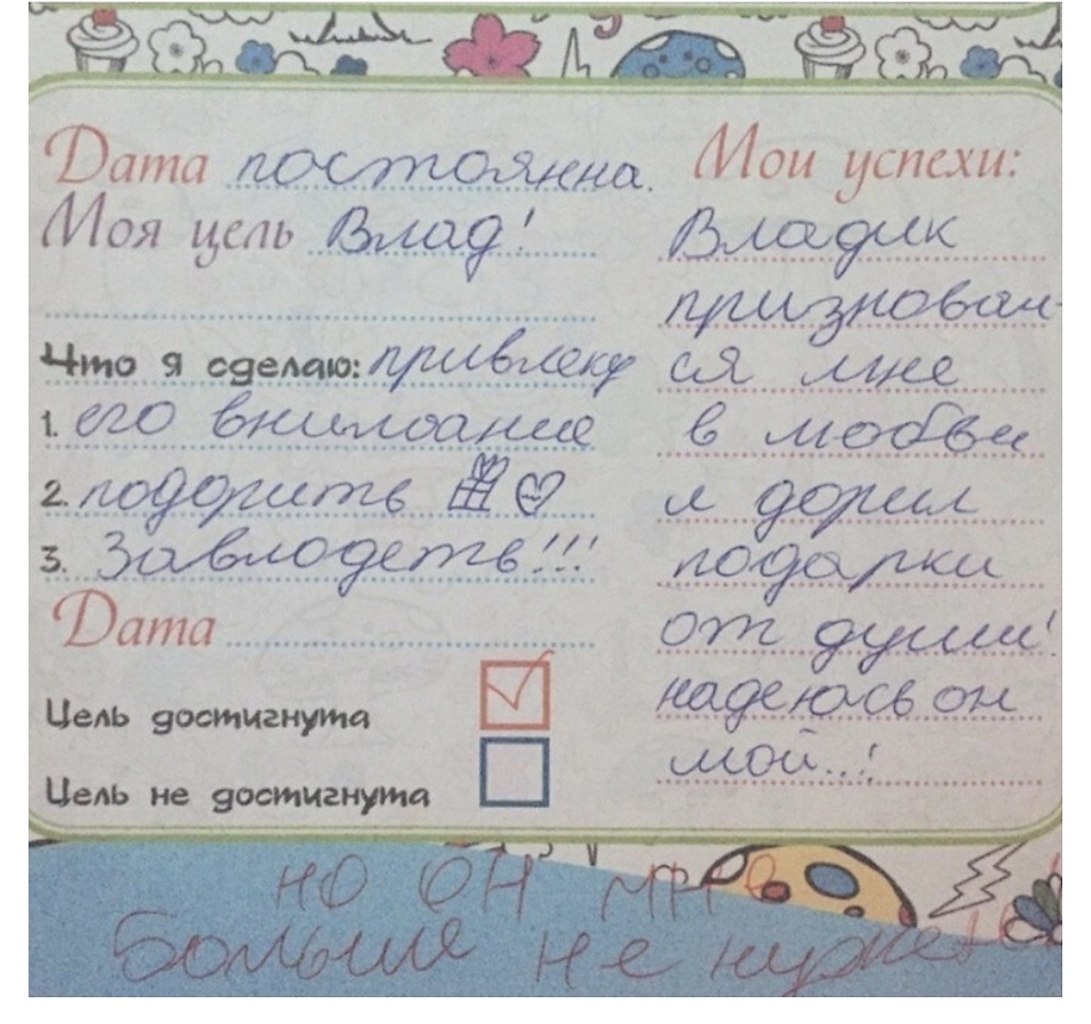 Дата постоянна.
Моя цель Влад!
Что я сделаю: привлеку
1. его внимоание
2. подорить
3. Завлодеть!!!
Дата
Цель достигнута
Цель не достигнута
Мои успехи:
Владик
признован-
ся мне
в любви
и дорил
подарки
от души!
надеюсь он
мой...!
но он мне
больше не нужен